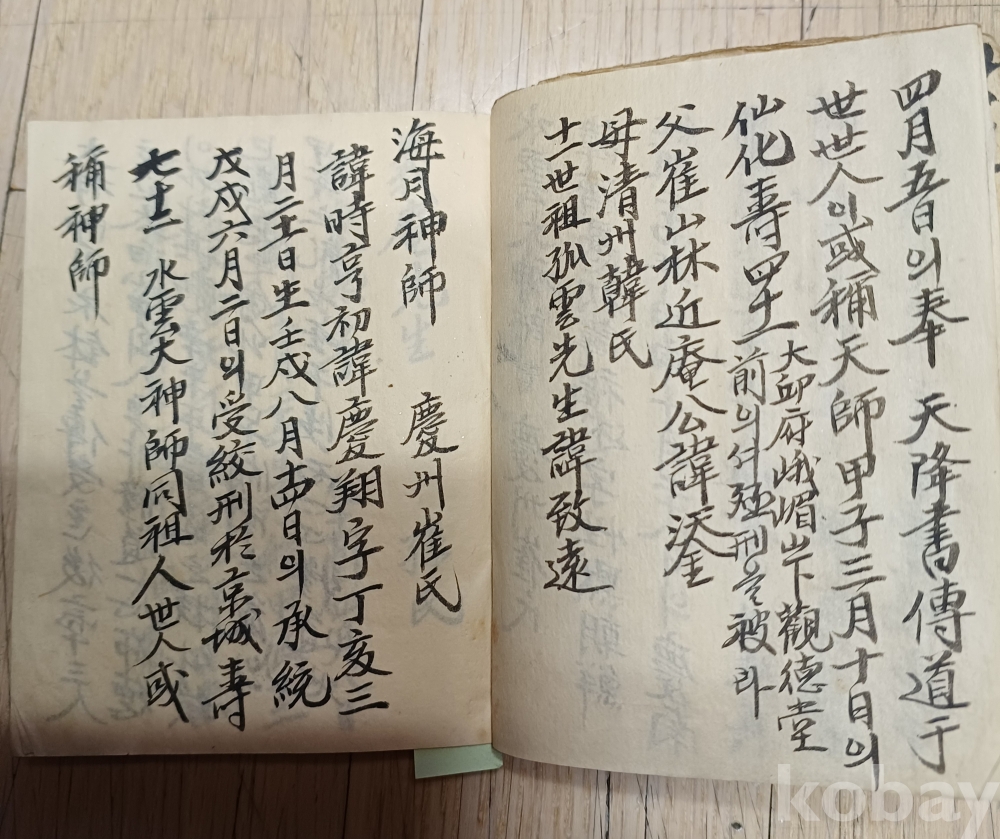 四月五日의奉 天降書傳道于
世世人이或稱天師甲子三月十日의
大邱府峨嵋山下觀德堂
仙化壽四十一前의서殛刑을被라
父崔山林近庵公諱鋈
母淸州韓氏
十一世祖孤雲先生諱致遠
海月神師 慶州崔氏
諱時亨初諱慶翔字丁亥三
月二十一日生壬戌八月十四日의承統
戊戌六月二日의受絞刑於京城壽
七十二 水雲大神師同祖人世人或
稱神師
kobay